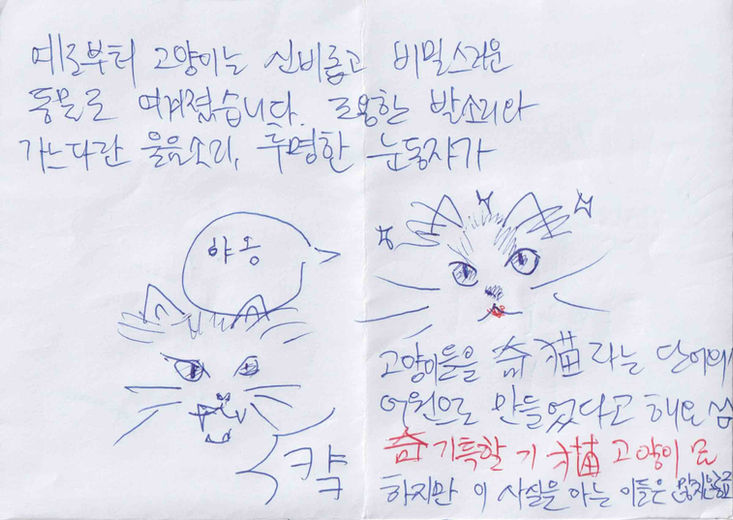 예로부터 고양이는 신비롭고 비밀스러운
동물로 여겨졌습니다. 조용한 발소리와
가느다란 울음소리, 투명한 눈동자가
야옹
캭
고양이들을 奇猫라는 단어의
어원으로 만들었다고 해요
奇 기특할 기 猫 고양이 묘
하지만 이 사실을 아는 이들은 많지않고